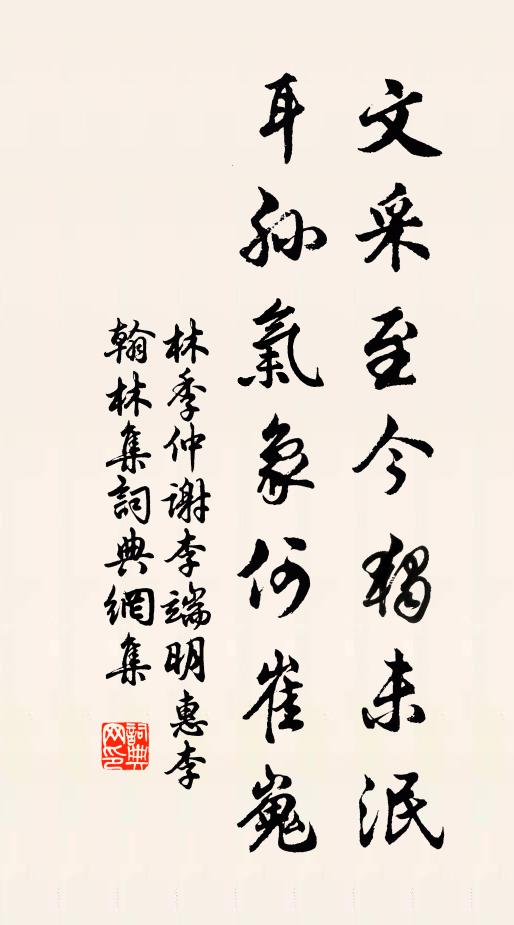 文采至今獨未泯
耳孫氣象何崔嵬
林季仲謝李端明惠李
翰林集詞典網集
詞典網印